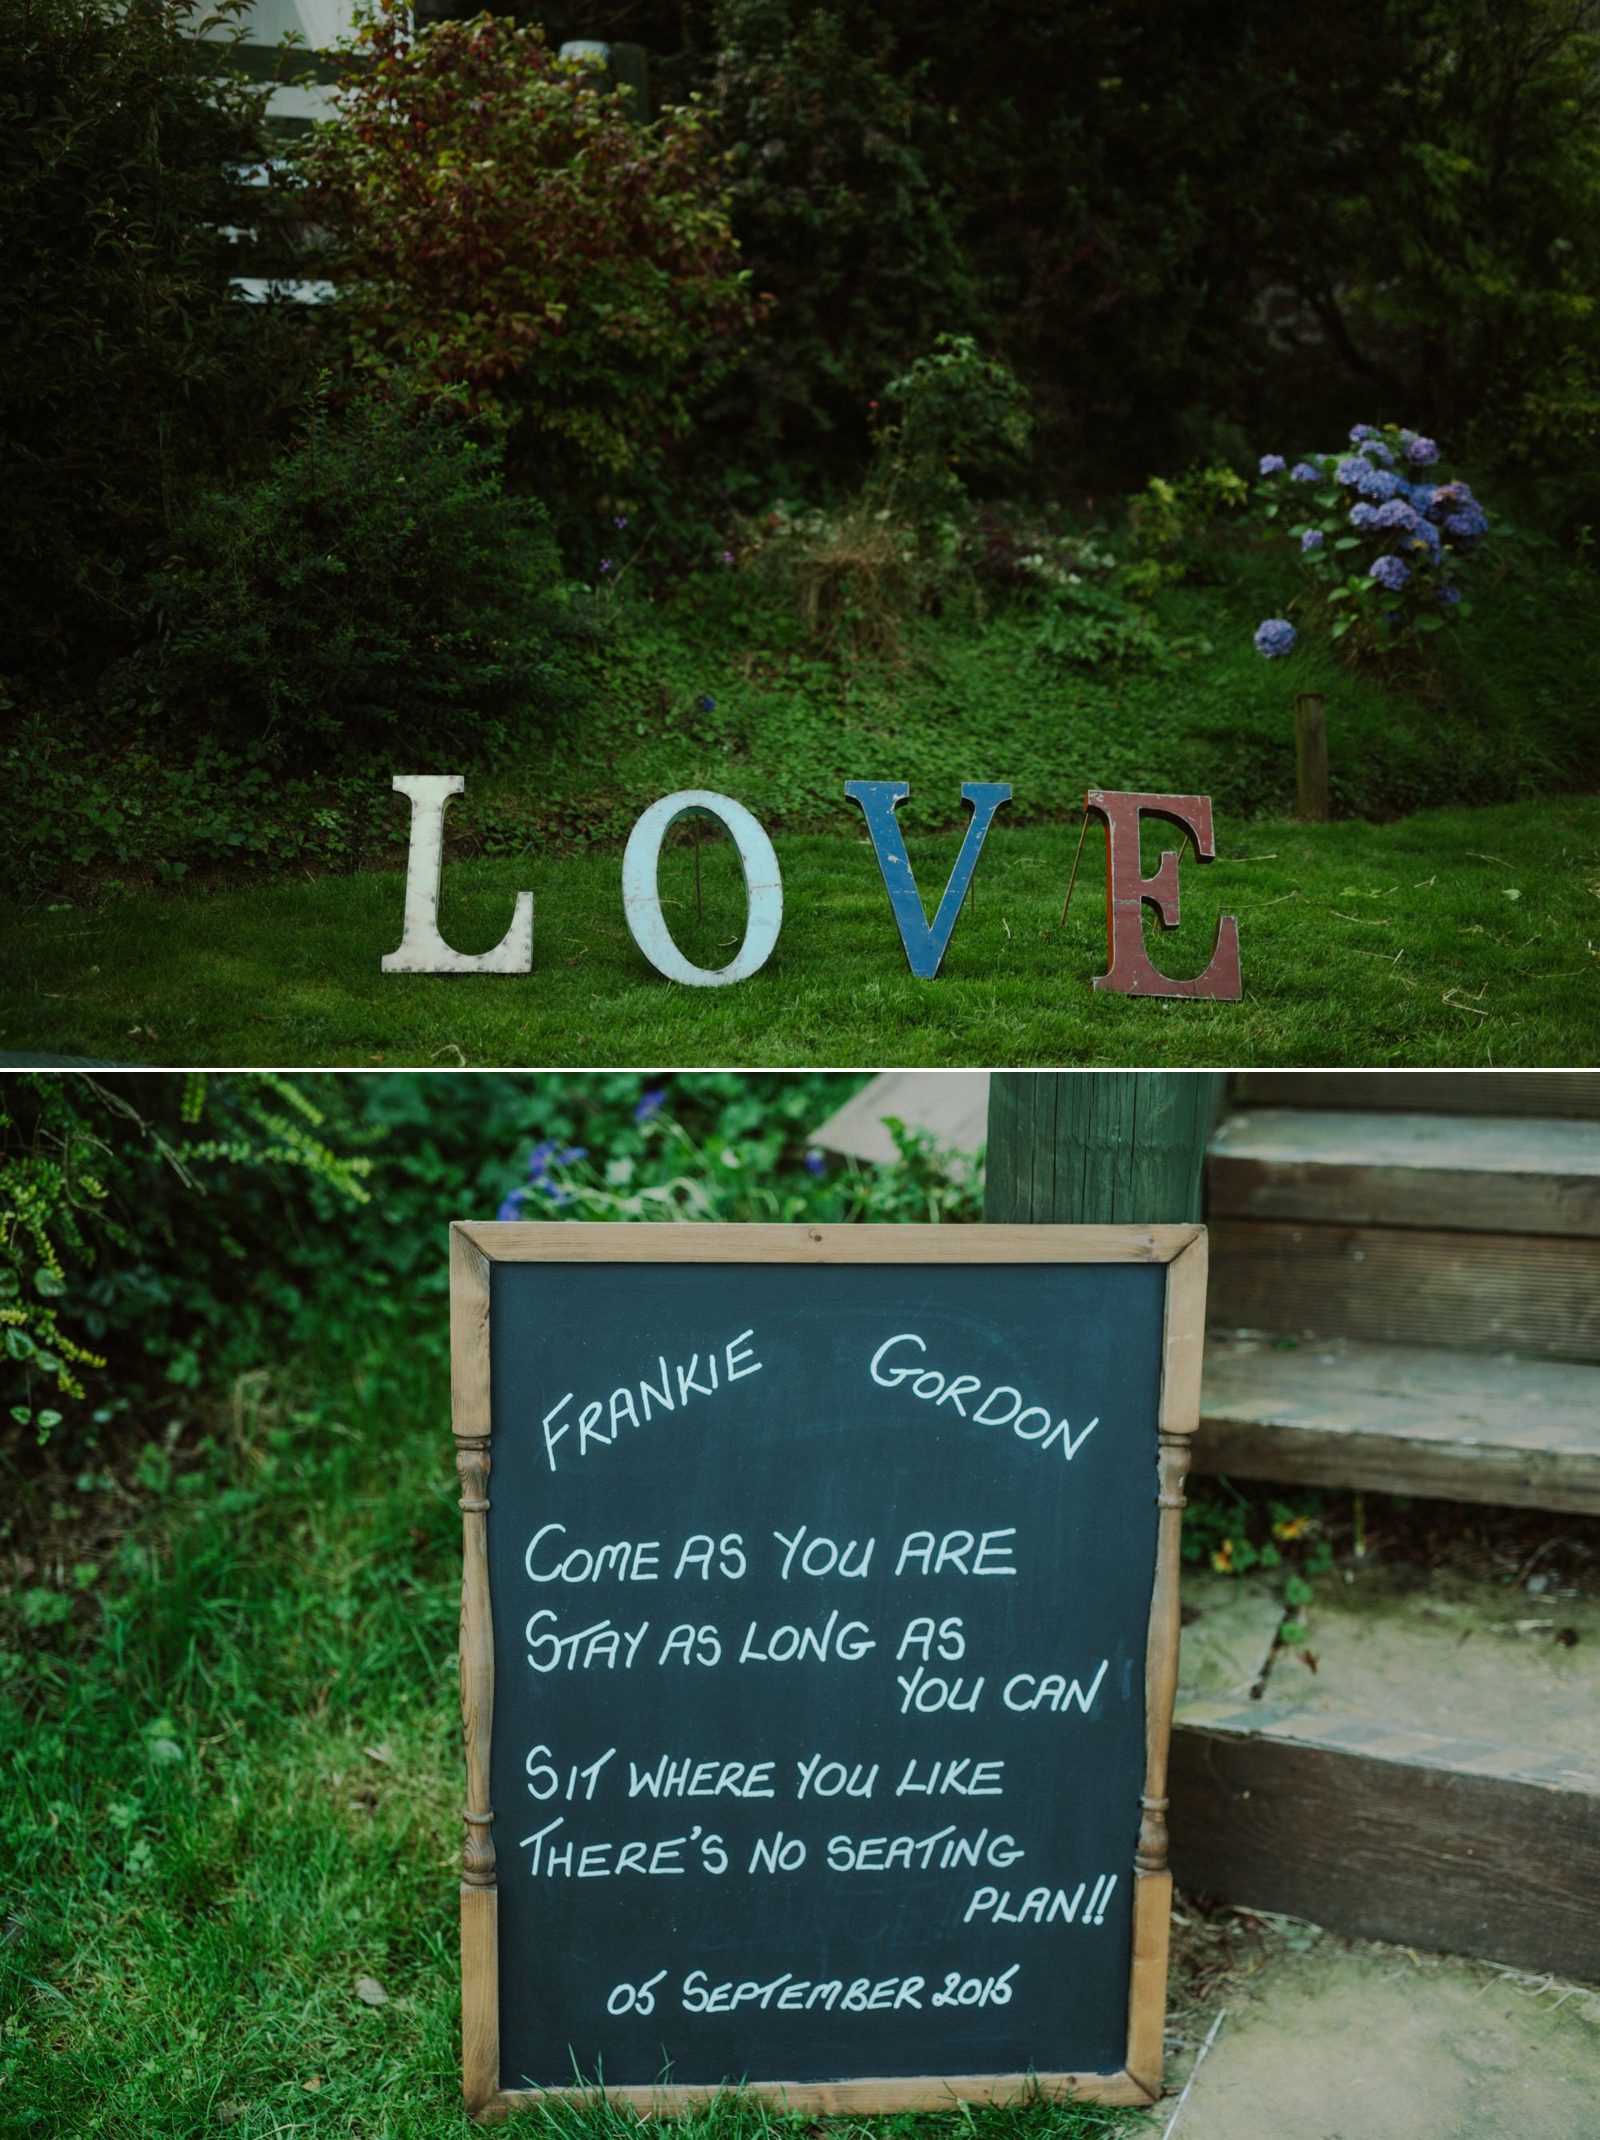 LOVE
FRANKIE GORDON
COME AS YOU ARE
STAY AS LONG AS
YOU CAN
SIT WHERE YOU LIKE
THERE'S NO SEATING
PLAN!!
05 SEPTEMBER 2015